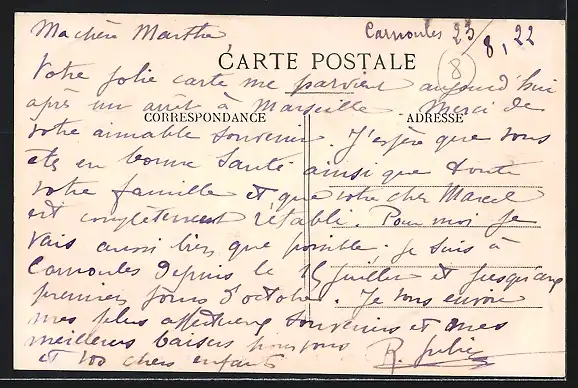 Carnoules 23/8, 22
Ma chère Marthe
CARTE POSTALE
8
CORRESPONDANCE
ADRESSE
Votre jolie carte me parvient aujourd'hui
après un arrêt à Marseille. Merci de
votre aimable souvenir. J'espère que vous
êtes en bonne santé ainsi que toute
votre famille et que votre cher Marcel
est complètement rétabli. Pour moi je
vais aussi bien que possible. Je suis à
Carnoules depuis le 15 juillet et jusqu'aux
premiers jours d'octobre. Je vous envoie
mes plus affectueux souvenirs et mes
meilleurs baisers pour vous
et vos chers enfants